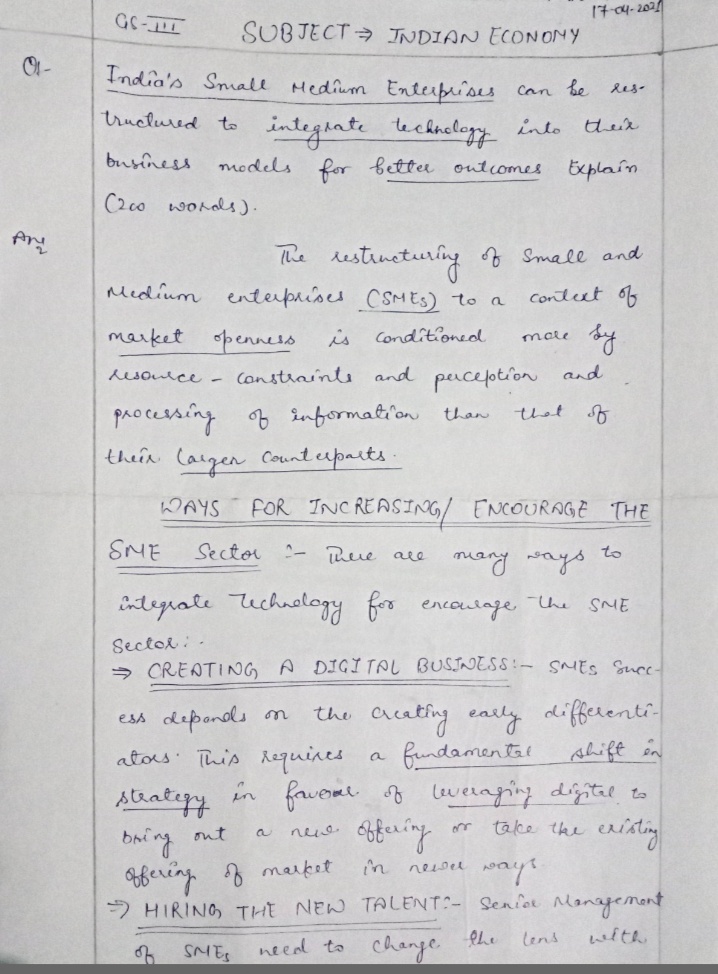 17-04-2021
GS-III
SUBJECT ⇒ INDIAN ECONOMY
Q1- India's Small Medium Enterprises can be res-
tructured to integrate technology into their
business models for better outcomes Explain
(200 words).
Ans
The restructuring of Small and
Medium enterprises (SMEs) to a context of
market openness is conditioned more by
resource - constraints and perception and
processing of information than that of
their larger counterparts.
WAYS FOR INCREASING/ ENCOURAGE THE
SME Sector :- There are many ways to
integrate Technology for encourage the SME
Sector:-
⇒ CREATING A DIGITAL BUSINESS:- SMEs Succ-
ess depends on the creating early differenti-
ators. This requires a fundamental shift in
strategy in favour of leveraging digital to
bring out a new offering or take the existing
offering of market in newer ways.
⇒ HIRING THE NEW TALENT:- Senior Management
of SMEs need to change the lens with